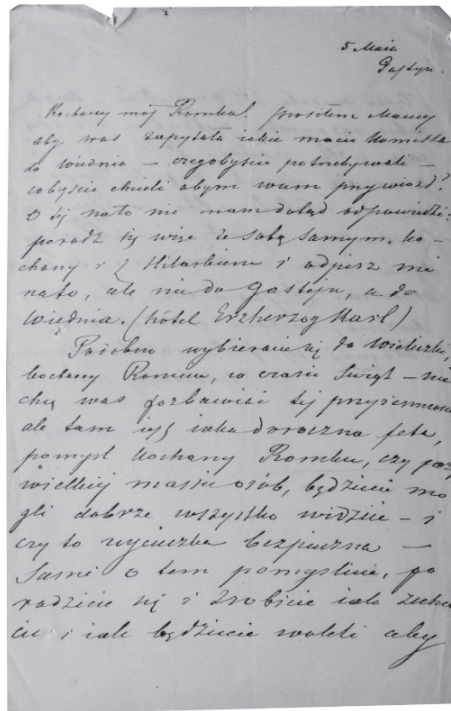 5 Maia
Gastyn.
Kochany mój Romku! prosiłem Mamy
aby was zapytała iakie macie Komissa
do Wiednia – czegobyście potrzebywali –
cobyście chcieli abym wam przywiózł?
O tej nato nie mam dotąd odpowiedzi:
poradź się więc ze sobą samym, ko-
chany i z Hilarkiem i odpisz mi
nato, ale nie do Gastyn, a do
Wiednia. (hôtel Erzherzog Karl)
Podobno wybieracie się do Wieliczki,
kochany Romciu, w czasie Swiąt – nie
chcę was pozbawiać tej przyiemności
ale tam iest iakaś doroczna feta,
pomyśl kochany Romku, czy przy
wielkiej massie osób, będziecie mo
gli dobrze wszystko widzieć – i
czy to wycieczka bezpieczna –
Sami o tem pomyślcie, po
radźcie się i zróbcie iak zechce
cie i iak będziecie woleli aby